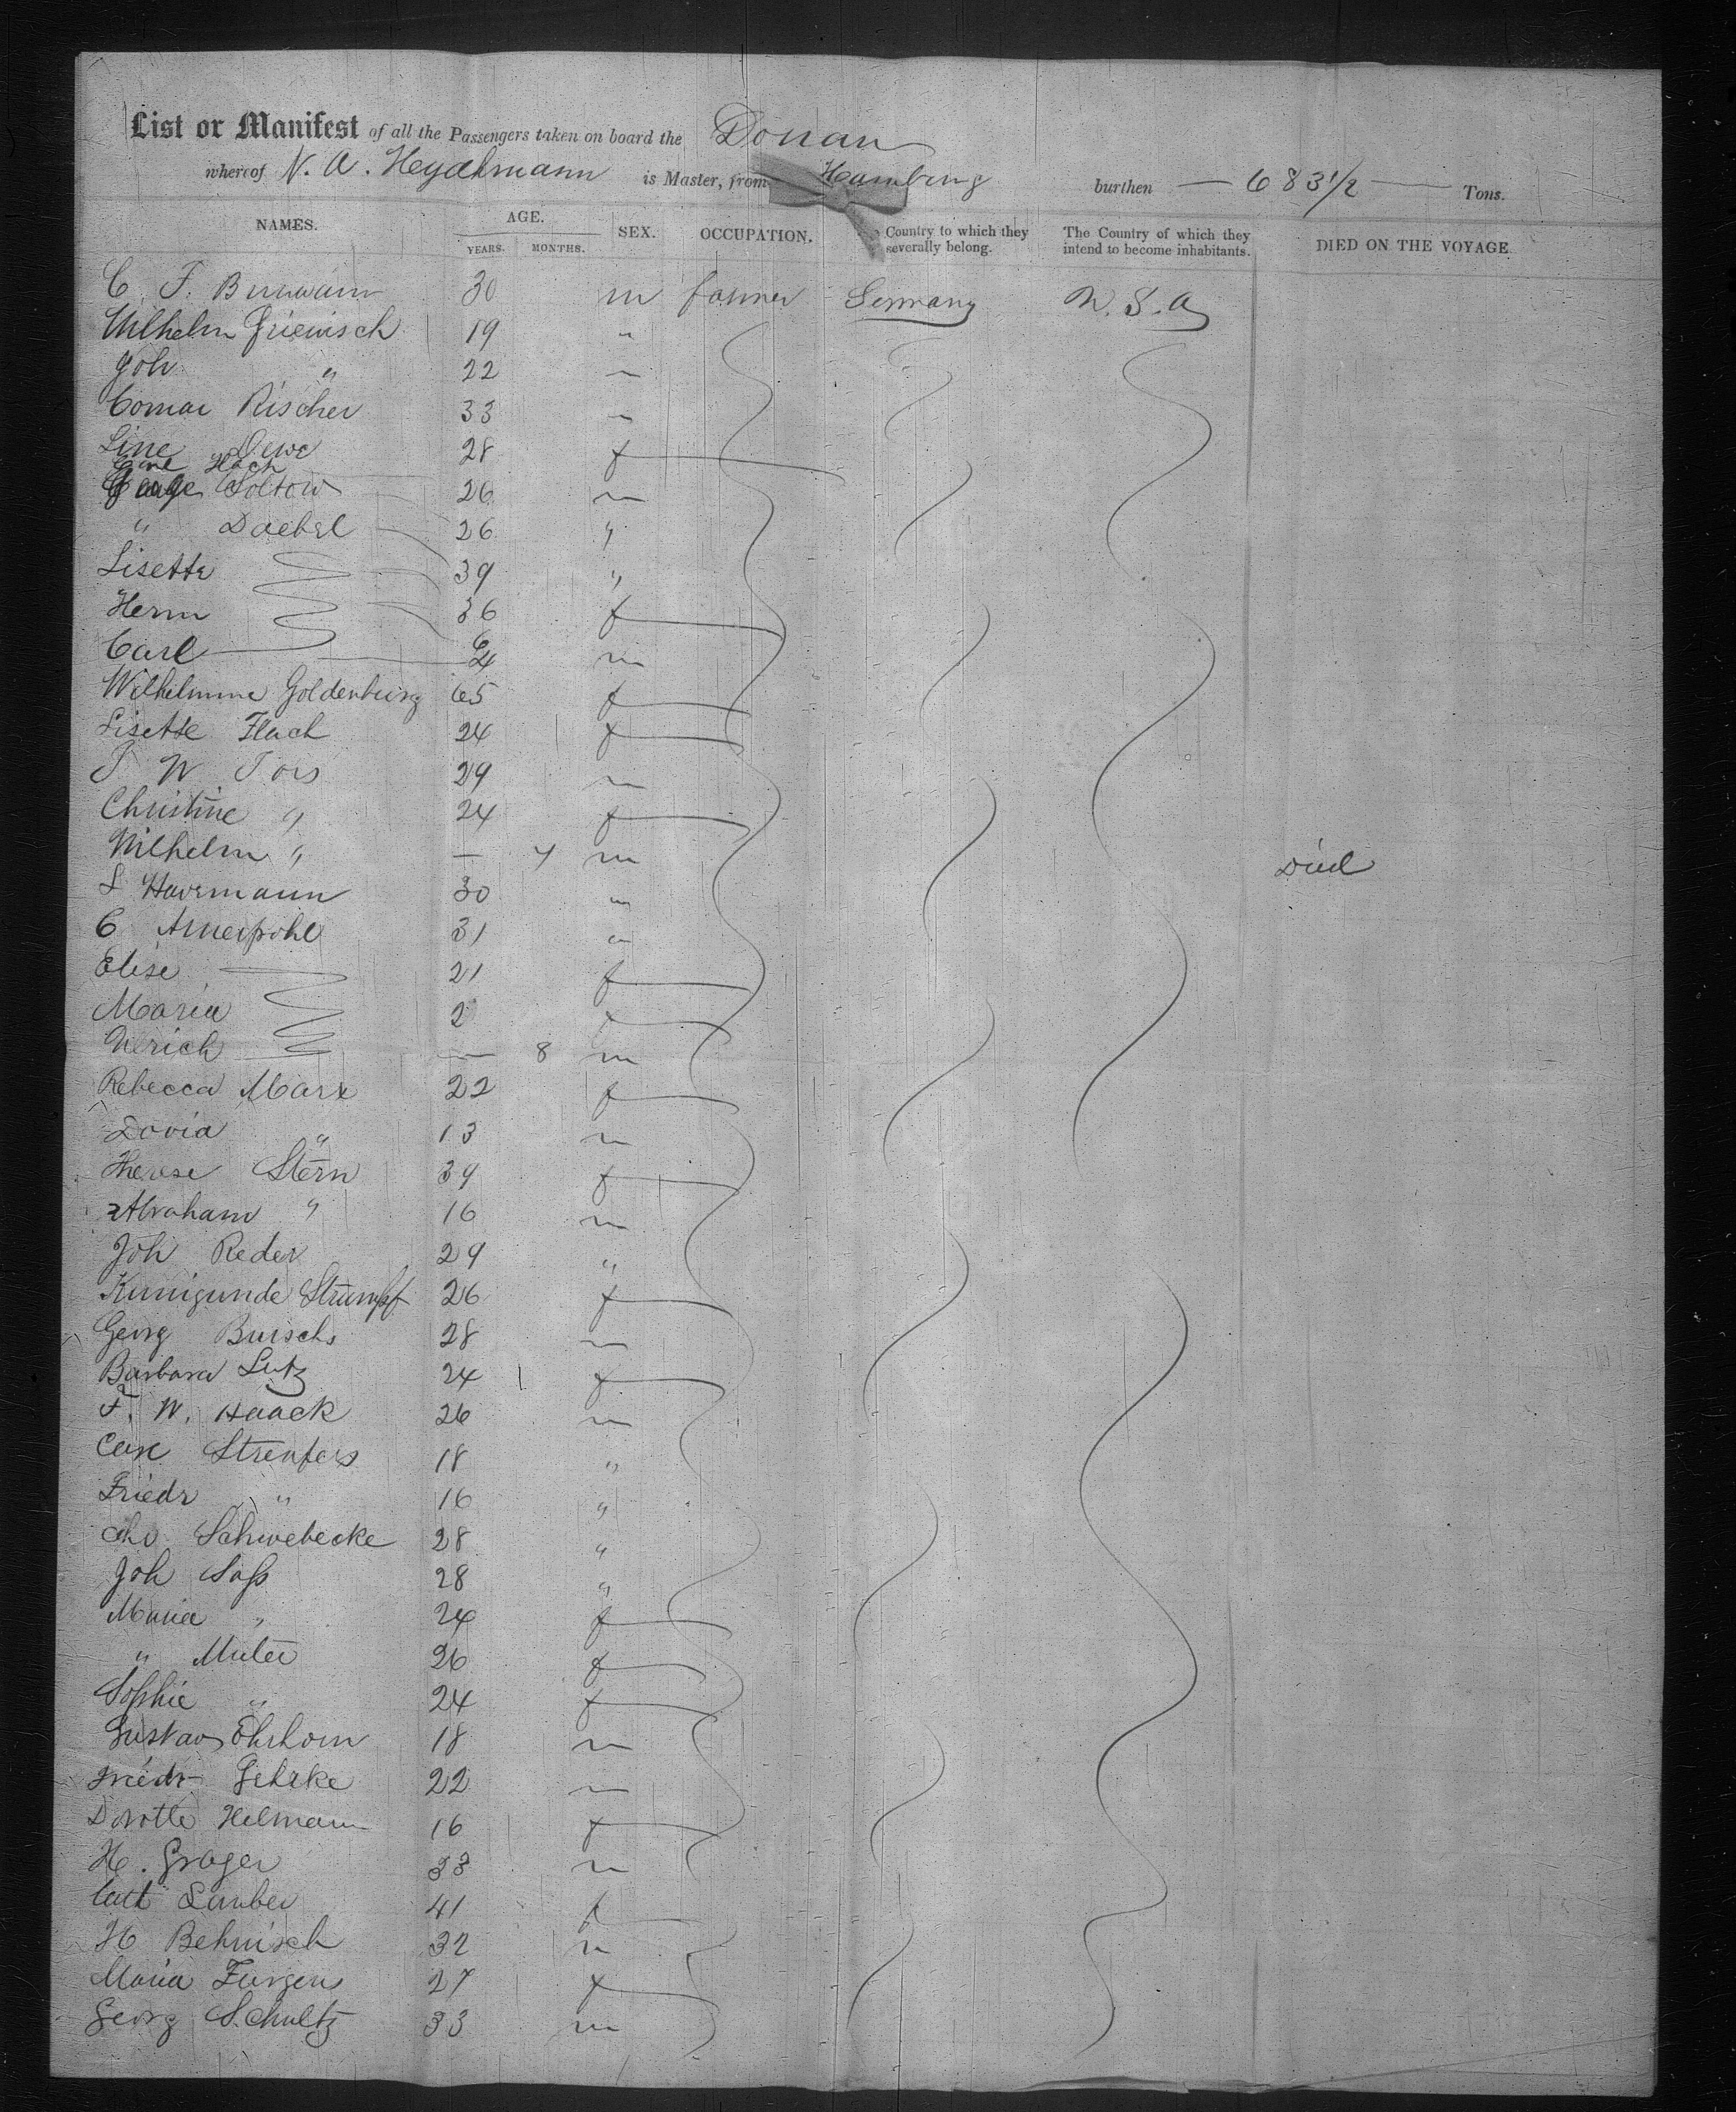 List or Manifest of all the Passengers taken on board the Donau
whereof N. A. Heydtmann is Master, from Hamburg burthen — 683 1/2 — Tons.
NAMES. AGE. SEX. OCCUPATION. Country to which they severally belong. The Country of which they intend to become inhabitants. DIED ON THE VOYAGE
YEARS. MONTHS.
C. F. 30 m farmer Germany U.S.A
Wilhelm Griewisch 19 "
Joh " 22 "
Rischer 33 "
Line Dewe 28 f
Line Hach
George Soltow 26 m
" Daebel 26 "
Lisette 39 "
Herm 36 f
Carl m
Wilhelmine Goldenburg 65 f
Lisette Flach 24 f
29 m
Christine " 24 f
Wilhelm " — m Died
L Havemann 30 "
C 31 "
Elise 21 f
Maria 2 f
Ulrich — 8 m
Rebecca Marx 22 f
David " 13 m
Therese Stern 39 f
Abraham " 16 m
Joh Reder 29 "
Kunigunde Strumpf 26 f
Georg 28 m
Barbara Lutz 24 f
F. W. Haack 26 m
Carl 18 "
Friedr " 16 "
Schwebecke 28 "
Joh Saß 28 "
Maria " 24 f
" 26 f
Sophie " 24 f
Gustav Ehrhorn 18 m
Friedr Gehrke 22 m
Helmann 16 f
H. Grager 33 m
41 f
H Behnisch 32 m
Maria Jurgens 27 f
Georg Schultz 33 m